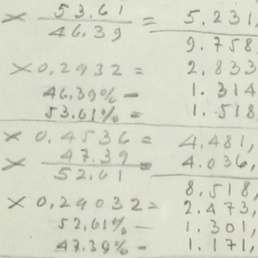 × 53.61 = 5.231,
46.39
9.758
× 0.2932 = 2.833
46.39% — 1.314
53.61% — 1.518
× 0.4536 = 4.481,
× 47.39 = 4.036,
52.61
8.518,
× 0.29032 = 2.473,
52.61% — 1.301,
47.39% — 1.171,